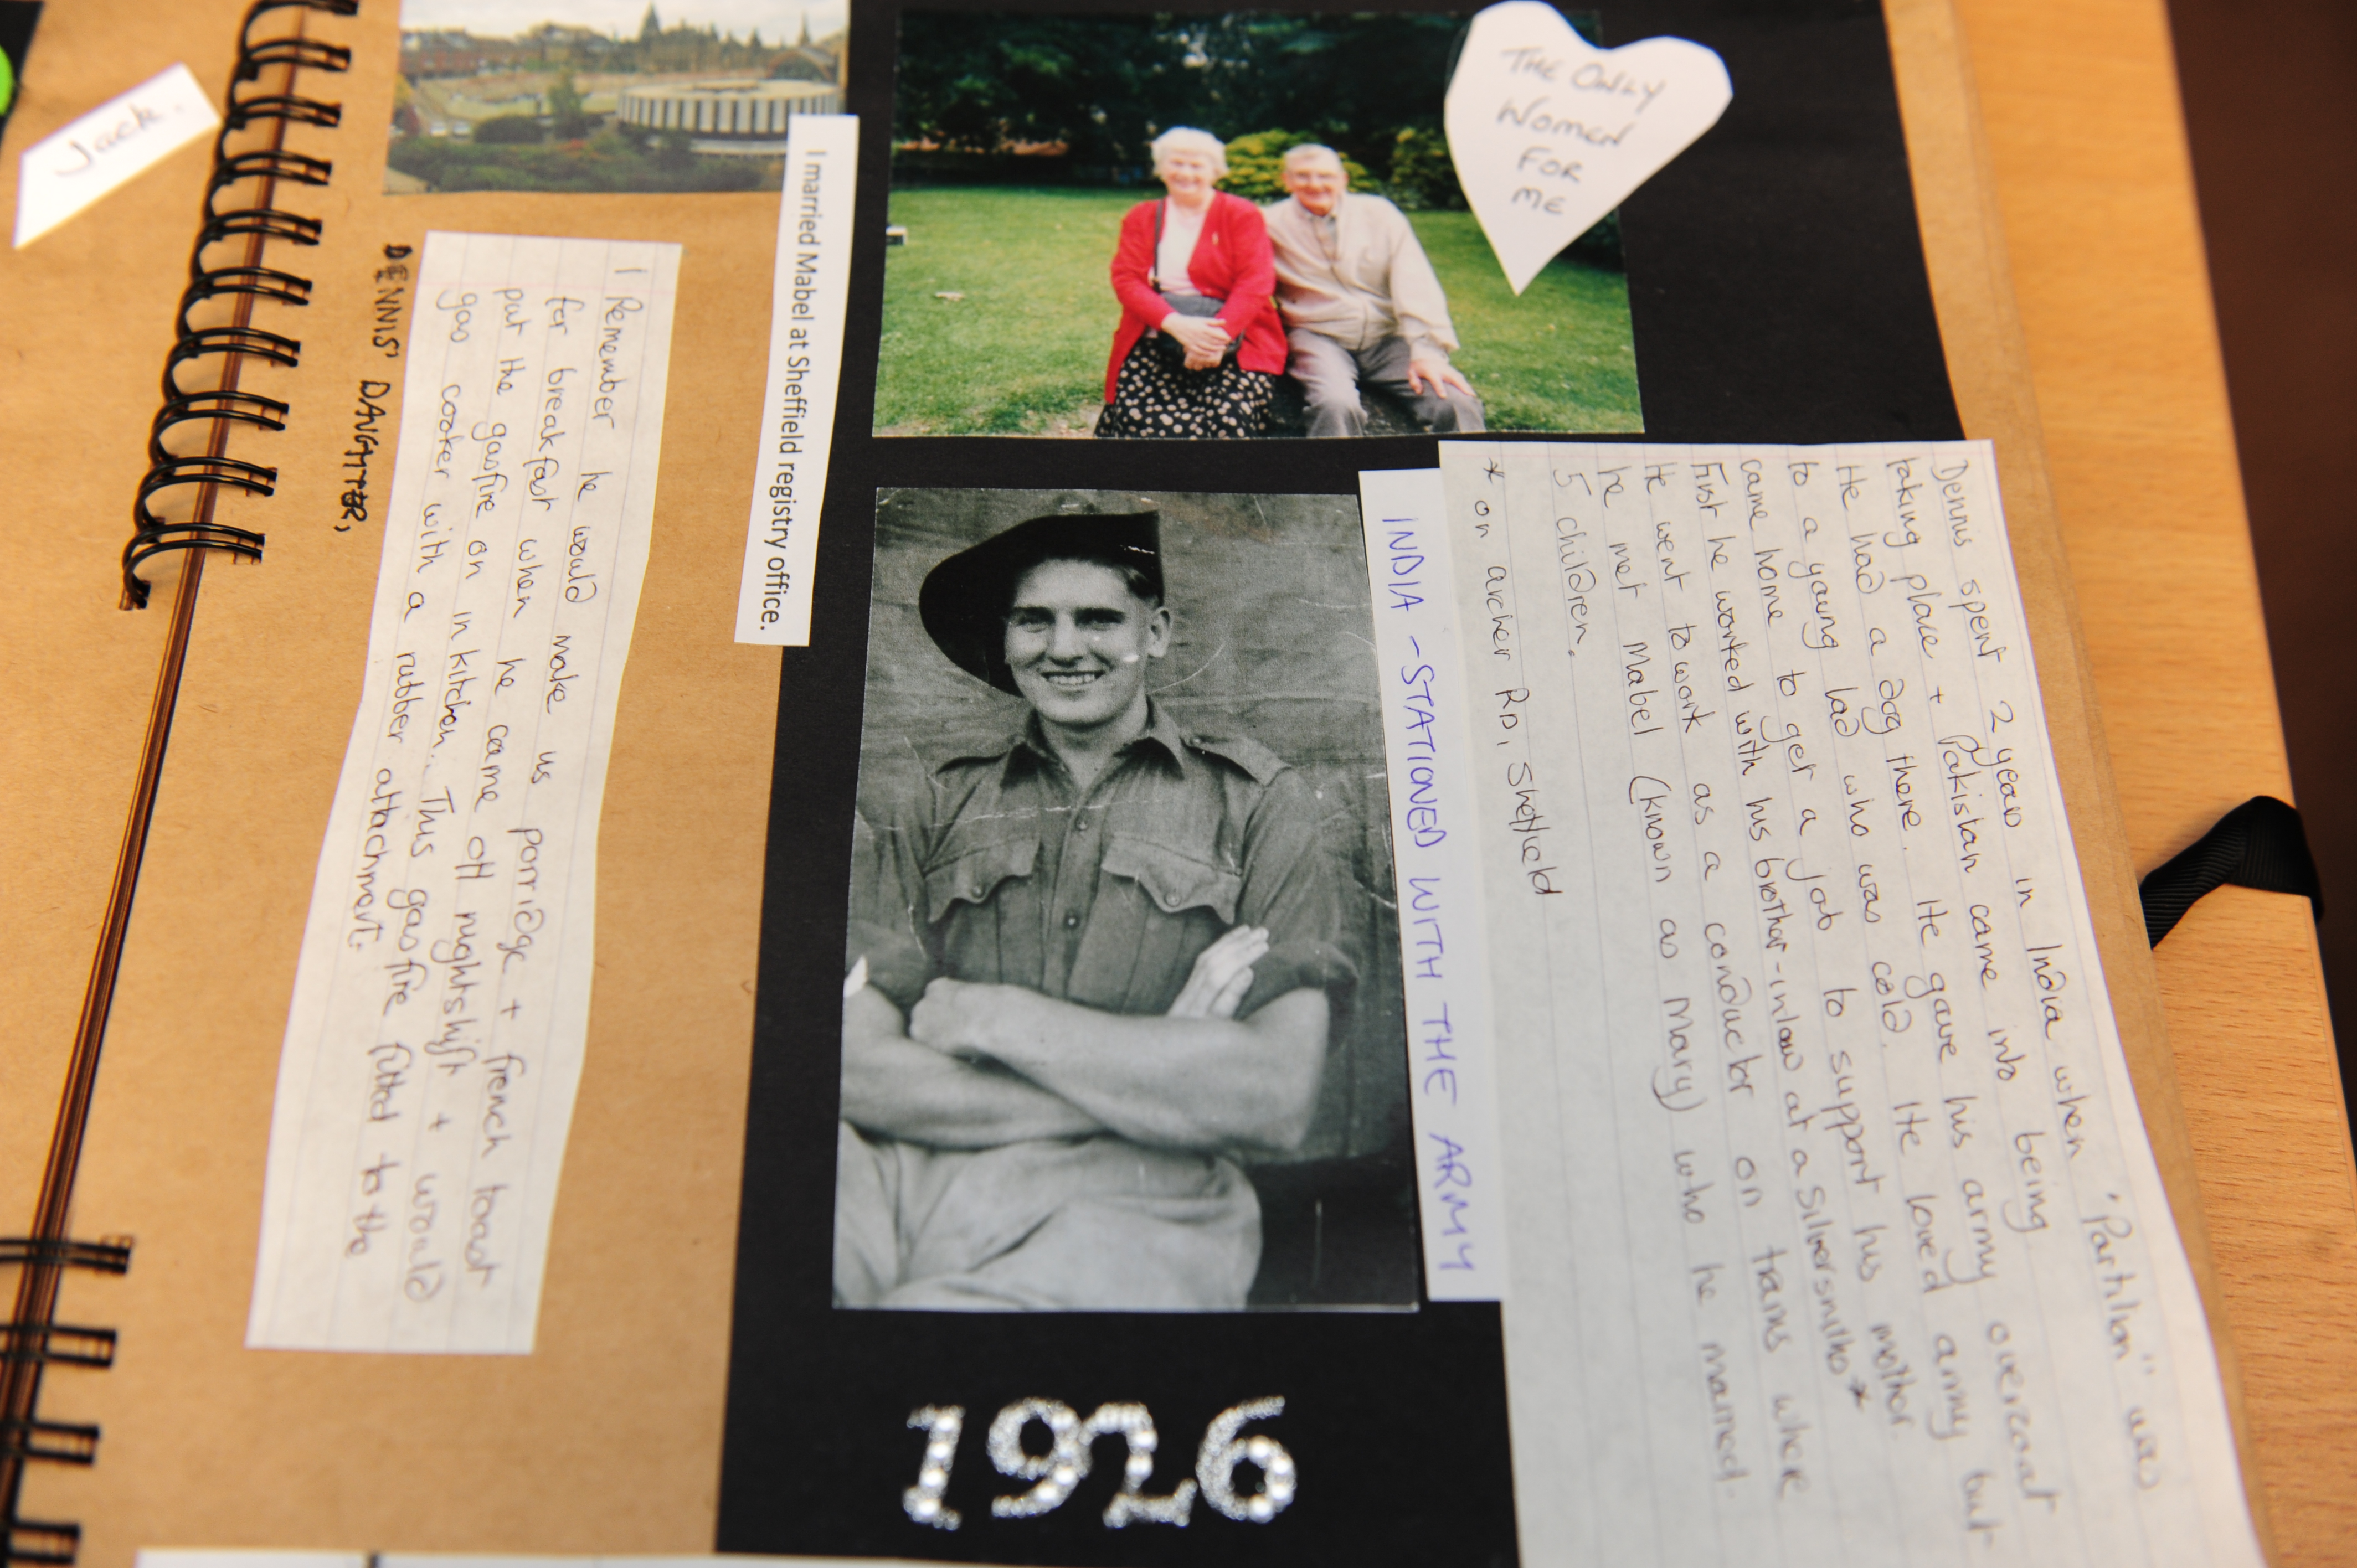 Jack.
THE ONLY
WOMEN
FOR
ME
I married Mabel at Sheffield registry office.
I Remember he would make us porridge + french toast
for breakfast when he came off nightshift + would
put the gasfire on in kitchen.. This gas fire fitted to the
gas cooker with a rubber attachment.
DENNIS' DAUGHTER,
INDIA - STATIONED WITH THE ARMY
Dennis spent 2 years in India when "Partition" was
taking place + Pakistan came into being
He had a dog there. He gave his army overcoat
to a young lad who was cold. He loved army but
came home to get a job to support his mother.
First he worked with his brother-in law at a Silversmiths *
He went to work as a conductor on trams where
he met Mabel (known as Mary) who he married.
5 children.
* on archer RD, Sheffield
1926